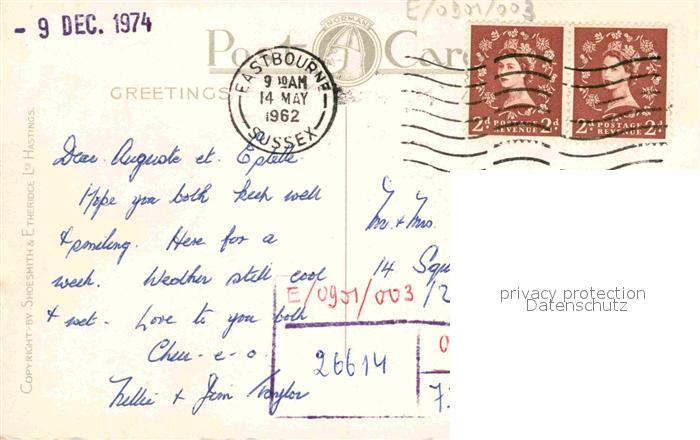 E/0901/003
- 9 DEC. 1974
NORMAN
Post Card
GREETINGS
EASTBOURNE
9 30AM
14 MAY
1962
SUSSEX
2d POSTAGE REVENUE 2d
2d POSTAGE REVENUE 2d
COPYRIGHT-BY SHOESMITH & ETHERIDGE LTD HASTINGS.
Dear Auguste et Estelle
Hope you both keep well
& smiling. Here for a
week. Weather still cool
& wet. Love to you both
Cheer-e-o.
Nellie & Jim Taylor
Mr. & Mrs.
14 Squ
E/0901/003/2
26614
0
7.
privacy protection
Datenschutz